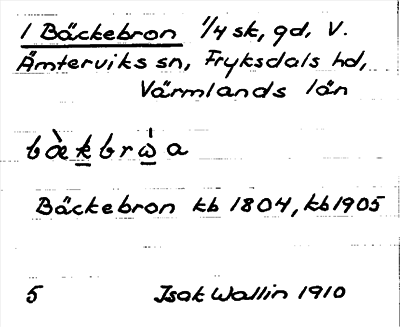 1 Bäckebron 1/4 sk, gd. V.
Ämterviks sn, Fryksdals hd,
Värmlands län
bæ̀kbrẁa
Bäckebron kb 1804, kb 1905
5 Isak Wallin 1910